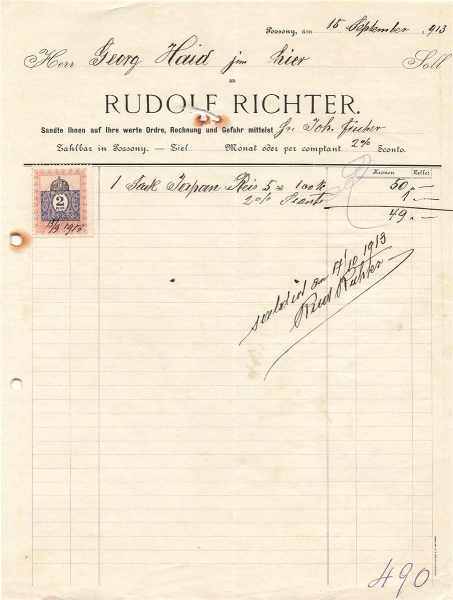 Pozsony, am 15 September 1913
Herr Georg Haid jun hier Soll
an
RUDOLF RICHTER.
Sandte Ihnen auf Ihre werte Ordre, Rechnung und Gefahr mittelst Hr. Joh. Fischer
Zahlbar in Pozsony. — Ziel Monat oder per comptant 2% Sconto.
Kronen Heller
1 Sack Japan Reis 5 100 K 50.—
2% Sconto 1.—
49.—
2
15/9 1913
saldiert am 17/10 1913
Rud Richter
490